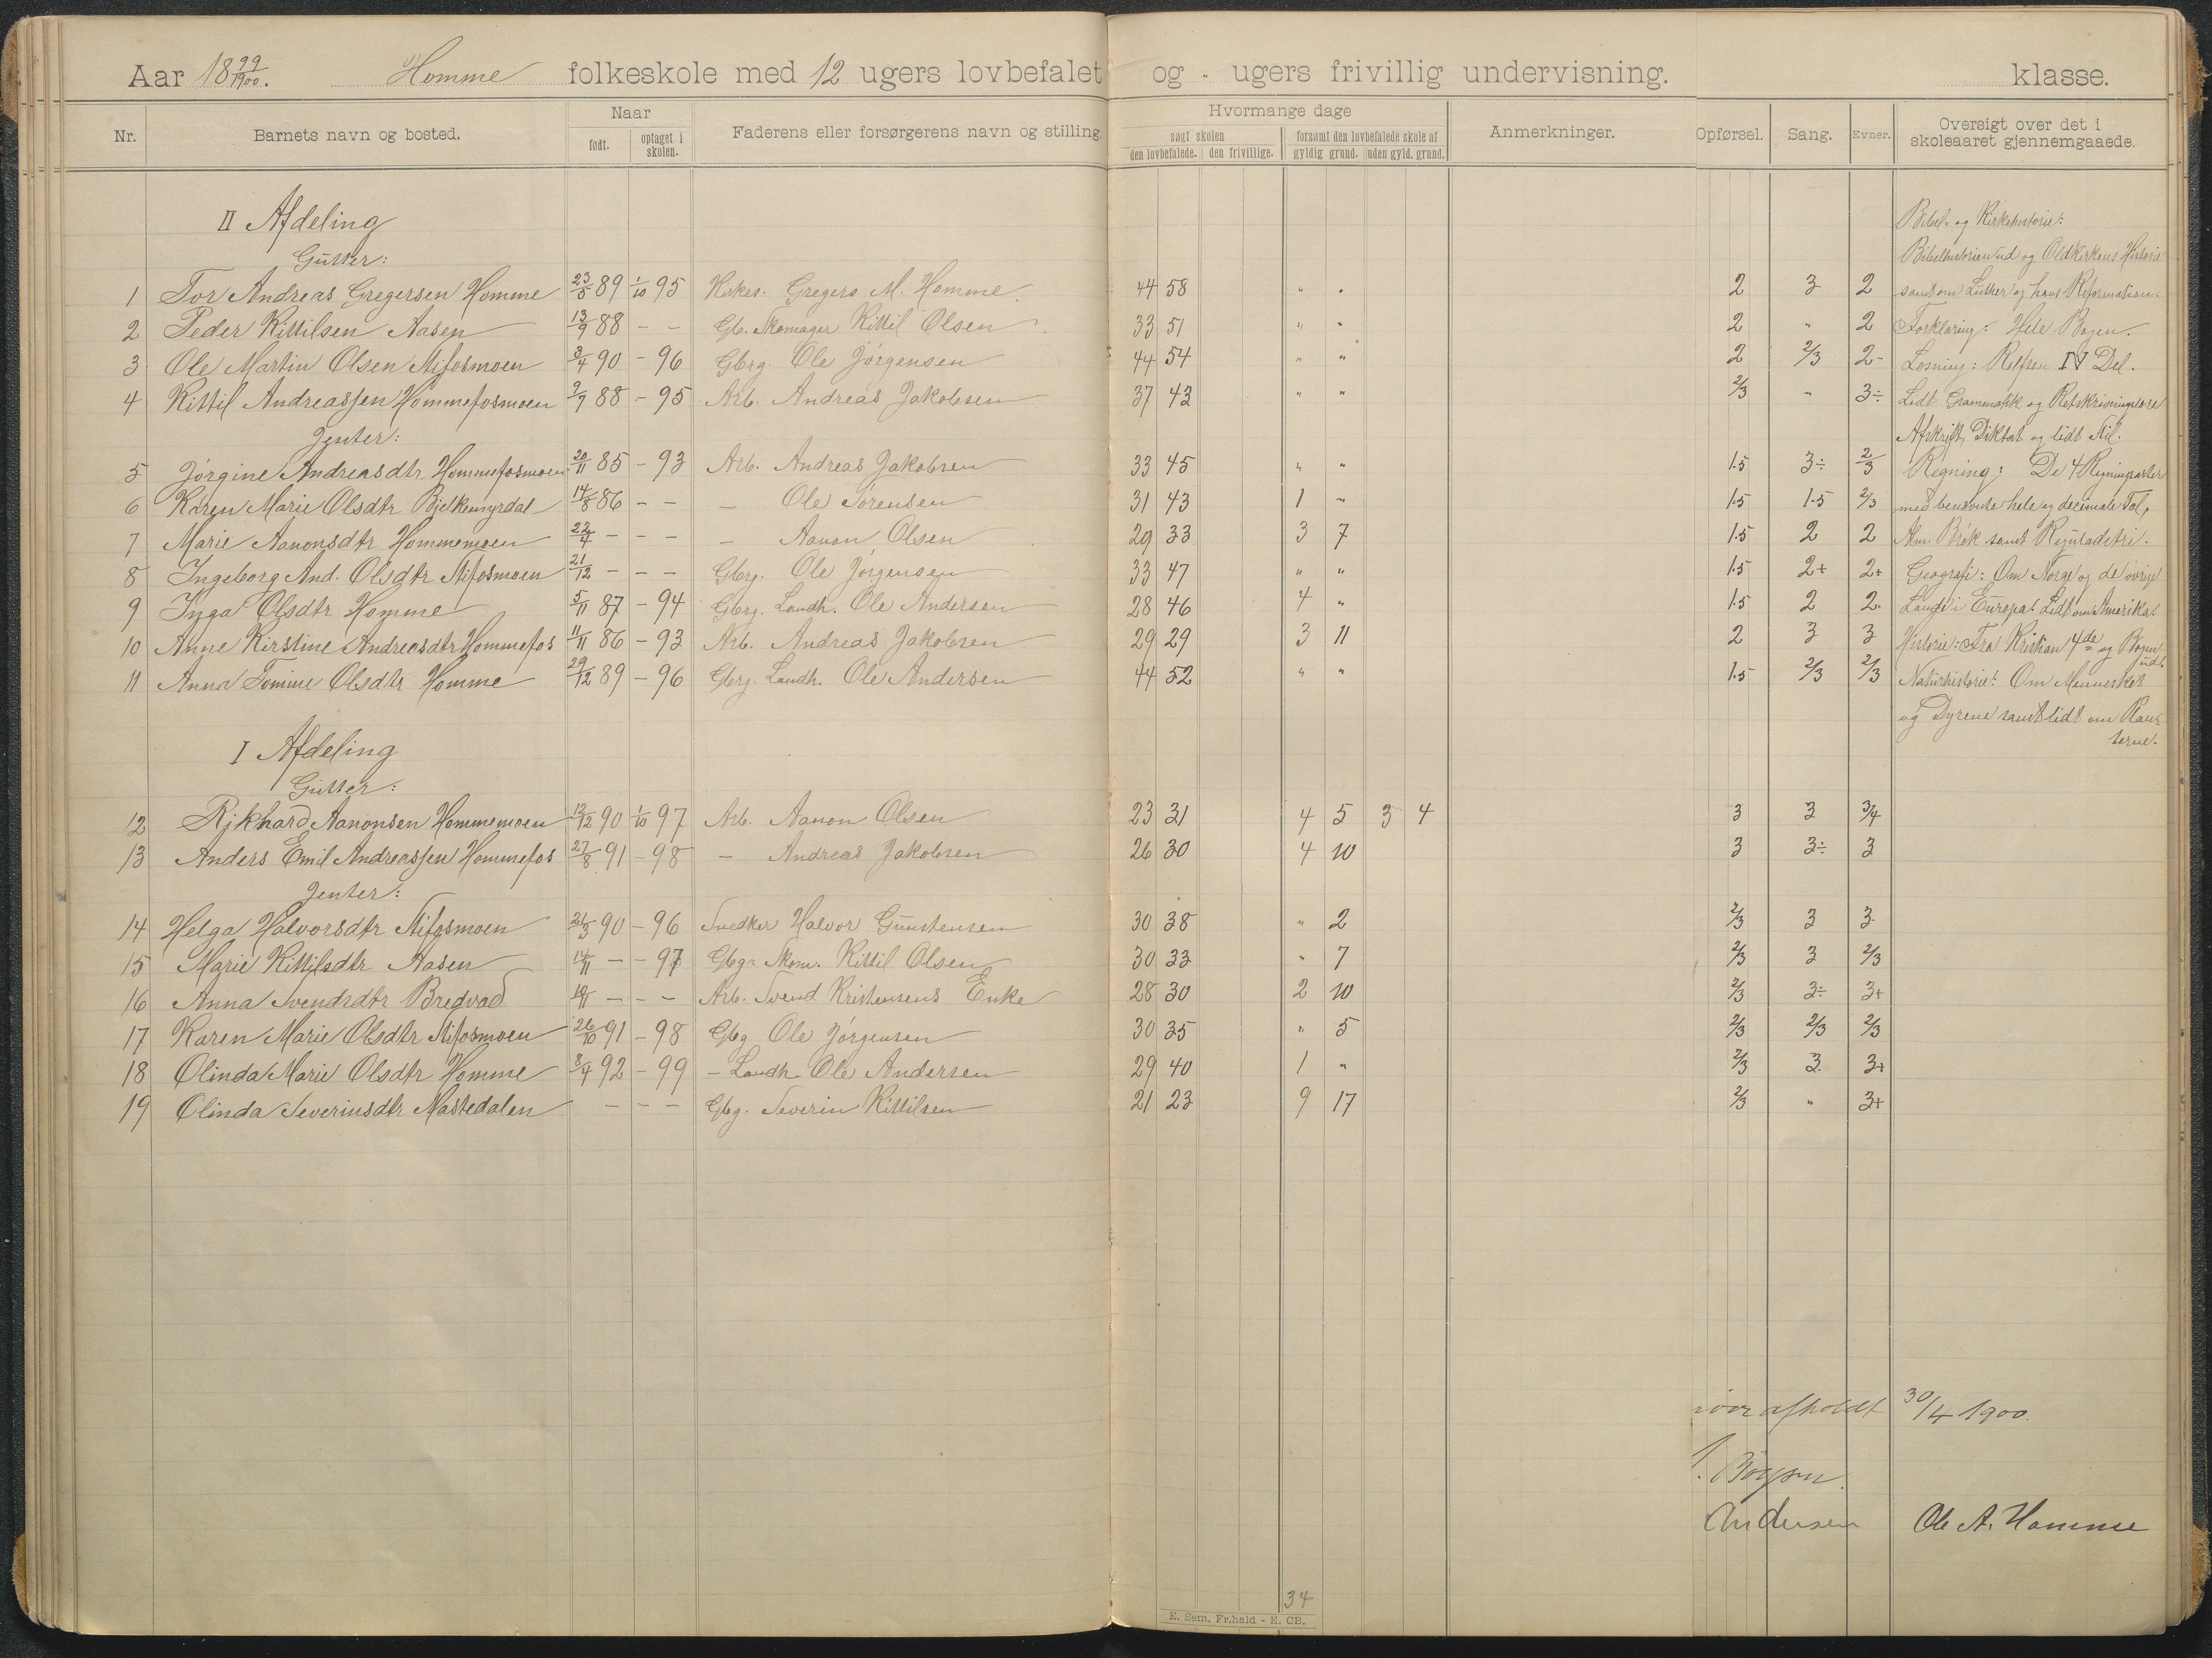 Aar 18 99/1900. Homme folkeskole med 12 ugers lovbefalet og " ugers frivillig undervisning. klasse.
Nr. Barnets navn og bosted. Naar født. optaget i skolen. Faderens eller forsørgerens navn og stilling. Hvormange dage søgt skolen den lovbefalede. den frivillige. forsømt den lovbefalede skole af gyldig grund. uden gyld. grund. Anmerkninger. Opførsel. Sang. Evner. Oversigt over det i skoleaaret gjennemgaaede.
II Afdeling Bibel- og Kirkehistorie:
Gutter: Bibelhistorien ud og Oldkirkens Historie
1 Tor Andreas Gregersen Homme 23/5 89 1/10 95 Kirkes. Gregers M. Homme 44 58 " " 2 3 2 samt om Luther og hans Reformation.
2 Peder Kittilsen Aasen 13/9 88 - - Gb. Skomager Kittil Olsen 33 51 " " 2 " 2 Forklaring: Hele Bogen.
3 Ole Martin Olsen Stifosmoen 3/4 90 - 96 Gbrg. Ole Jörgensen 44 54 " " 2 2/3 2- Læsning: IV Del.
4 Kittil Andreassen Hommefosmoen 2/7 88 - 95 Arb. Andreas Jakobsen 37 43 " " 2/3 " 3÷ Lidt Grammatikk og Retskrivningslære
Jenter: Afskrift, Diktat og lidt Stil.
5 Jörgine Andreasdtr. Hommefosmoen 20/11 85 - 93 Arb. Andreas Jakobsen 33 45 " " 1.5 3÷ 2/3 Regning: De 4 Regningsarter
6 Karen Marie Olsdtr. Bjelkemyrdal 14/8 86 - - - Ole Sörensen 31 43 1 " 1.5 1.5 2/3 med benævnte hele og decimale Tal,
7 Marie Aanonsdtr Hommemoen 22/4 - - - - Aanon Olsen 29 33 3 7 1.5 2 2 Alm. Brök samt Reguladetri.
8 Ingeborg And. Olsdtr Stifosmoen 21/12 - - - Gbrg. Ole Jörgensen 33 47 " " 1.5 2+ 2+ Geografi: Om Norge og de övrige
9 Inga Olsdtr Homme 5/11 87 - 94 Gbrg. Landh. Ole Andersen 28 46 4 " 1.5 2 2 Lande i Europa. Lidt om Amerika.
10 Anne Kirstine Andreasdtr Hommefos 11/11 86 - 93 Arb. Andreas Jakobsen 29 29 3 11 2 3 3 Historie: Fra Kristian 4de og Bogen ud.
11 Anna Tomine Olsdtr Homme 29/12 89 - 96 Gbrg. Landh. Ole Andersen 44 52 " " 1.5 2/3 2/3 Naturhistorie: Om Mennesket
og Dyrene samt lidt om Plan-
terne.
I Afdeling
Gutter:
12 Rikhard Aanonsen Hommemoen 12/12 90 1/10 97 Arb. Aanon Olsen 23 31 4 5 3 4 3 3 3/4
13 Anders Emil Andreassen Hommefos 27/8 91 - 98 - Andreas Jakobsen 26 30 4 10 3 3÷ 3
Jenter:
14 Helga Halvorsdtr Stifosmoen 21/3 90 - 96 Snedker Halvor Gunstensen 30 38 " 2 2/3 3 3
15 Marie Kittilsdtr Aasen 14/11 - - 97 Gbgr. Skom. Kittil Olsen 30 33 " 7 2/3 3 2/3
16 Anna Svendsdtr Bredvad - - - Arb. Svend Kristensens Enke 28 30 2 10 2/3 3÷ 3+
17 Karen Marie Olsdtr Stifosmoen 26/10 91 - 98 Gbg Ole Jörgensen 30 35 " 5 2/3 2/3 2/3
18 Olinda Marie Olsdtr Homme 8/4 92 - 99 - Landh. Ole Andersen 29 40 1 " 2/3 3 3+
19 Olinda Severinsdtr Mastedalen - - - Gbg. Severin Kittilsen 21 23 9 17 2/3 " 3+
afholdt 30/4 1900.
Andersen Ole A. Homme
34
E. Sem, Fr.hald - E. CB.